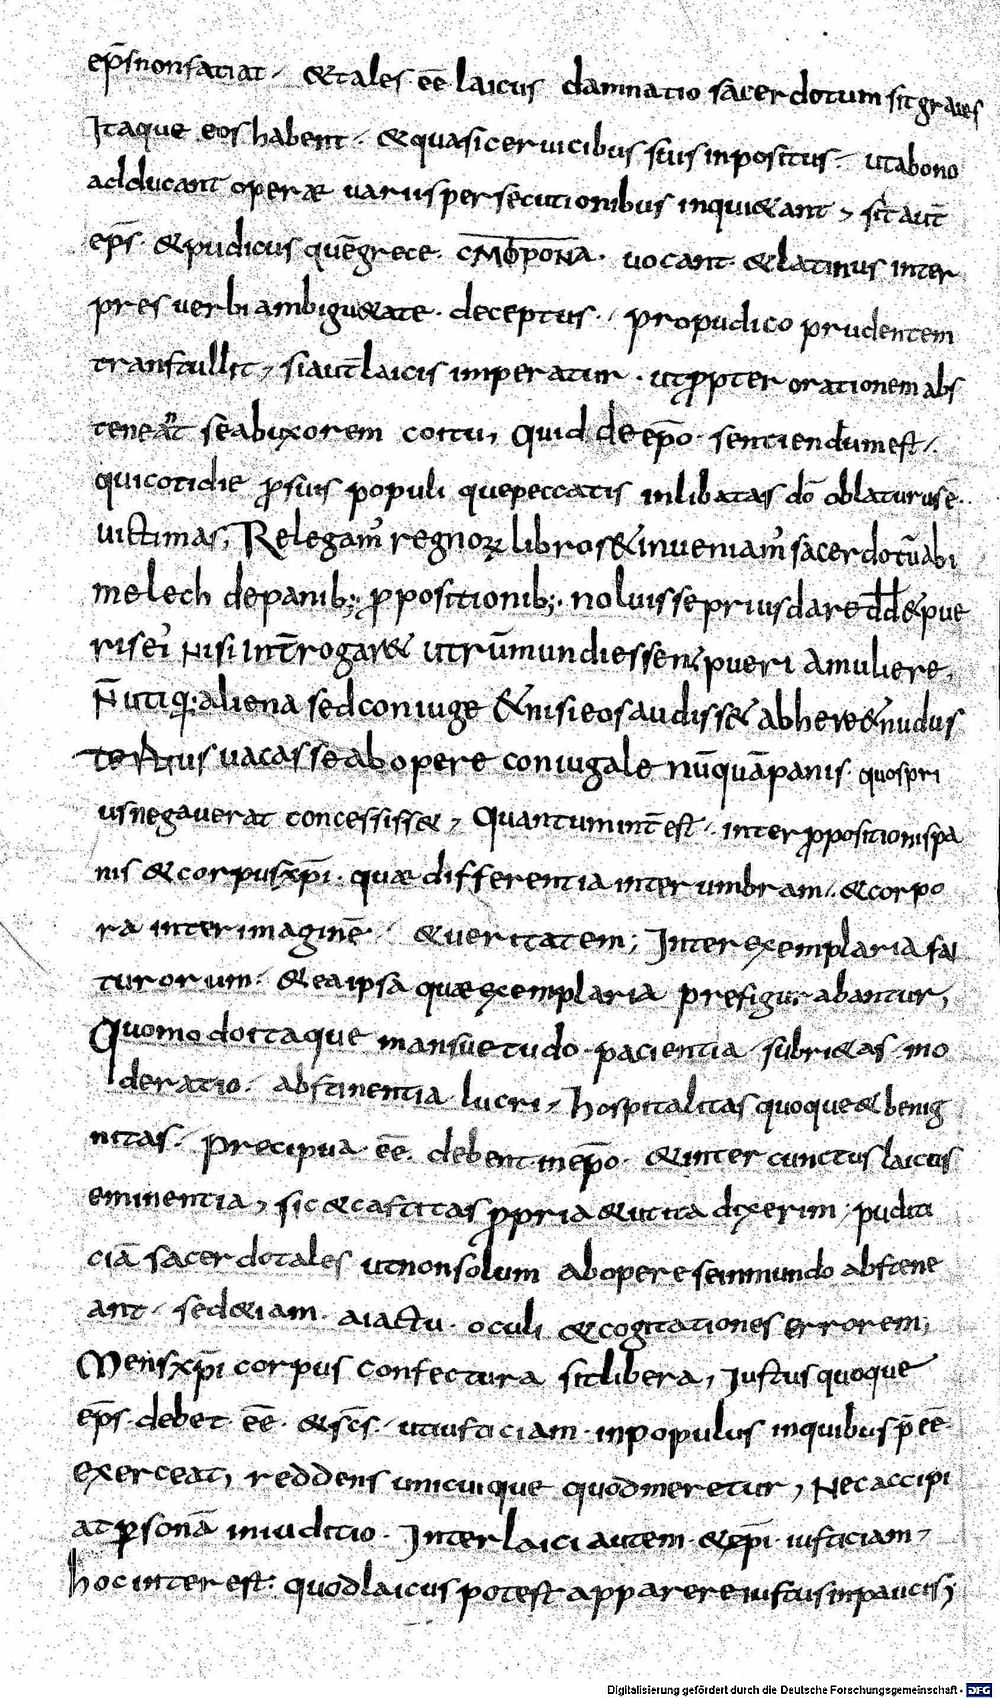 ep̄s non satiat · & tales ēē laicus damnatio sacerdotum sit graues
Itaque eos habent · & quasi ceruicibus suis inpositus · ut a bono
adducant operæ uariis persecutionibus inqui&ant , sit aut̄
ep̄s · & pudicus quē grece · CⲰΦΡΟΝΑ · uocant · & latinus inter
pres uerbi ambigu&ate · deceptus · pro pudico prudentem
transtullit , si aut̄ laicis imperatur · ut ꝓpter orationem abs
teneāt se ab uxorem coitu , quid de ep̄o sentiendum est
qui cotidie ꝓ suis populi que peccatis inlibatas dō oblaturus ē
uictimas , Relegam' regnoꝝ libros & inueniam' sacerdotū abi
melech de panib; ꝓpositionib; · noluisse prius dare dd̄ & pue
ris ei' nisi int̄rogar& utrūm mundi essent pueri a muliere ,
N̄ utiq; · aliena sed coniuge & nisi eos audiss& ab here & nudus
tertius uacasse ab opere coniugale nūquā panis quos pri
us negauerat concessiss& , Quantum int̄est · inter ꝓpositionis pa
nis & corpus xp̄i · quæ differentia inter umbram · & corpo
ra inter imaginē · & ueritatem ; Inter exemplaria fu
turorum · & ea ipsa quæ exemplaria prefigurabantur ,
Quomodo itaque mansuetudo · pacientia · subri&as · mo
deratio · abstinentia lucri , hospitalitas quoque & benig
nitas · precipua ēē · debent in ep̄o · & inter cunctus laicus
eminentia , sic & castitas ꝓpria & ut ita dixerim , pudici
ciā sacerdotales ut non solum ab opere se inmundo abstene
ant · sed &iam · a iactu · oculi & cogitationes errorem ;
Mens xp̄i corpus confectura sit libera , Iustus quoque
ep̄s · debet ēē · & sc̄s · ut iusticiam · in populus in quibus p̄ēē
exerceat , reddens unicuique quod meretur , Nec accipi
at ꝑsonā in iuditio · Inter laici autem · & ep̄i · iusticiam ,
hoc inter est · quod laicus potest apparere iustus in paucis ;
Digitalisierung gefördert durch die Deutsche Forschungsgemeinschaft · DFG